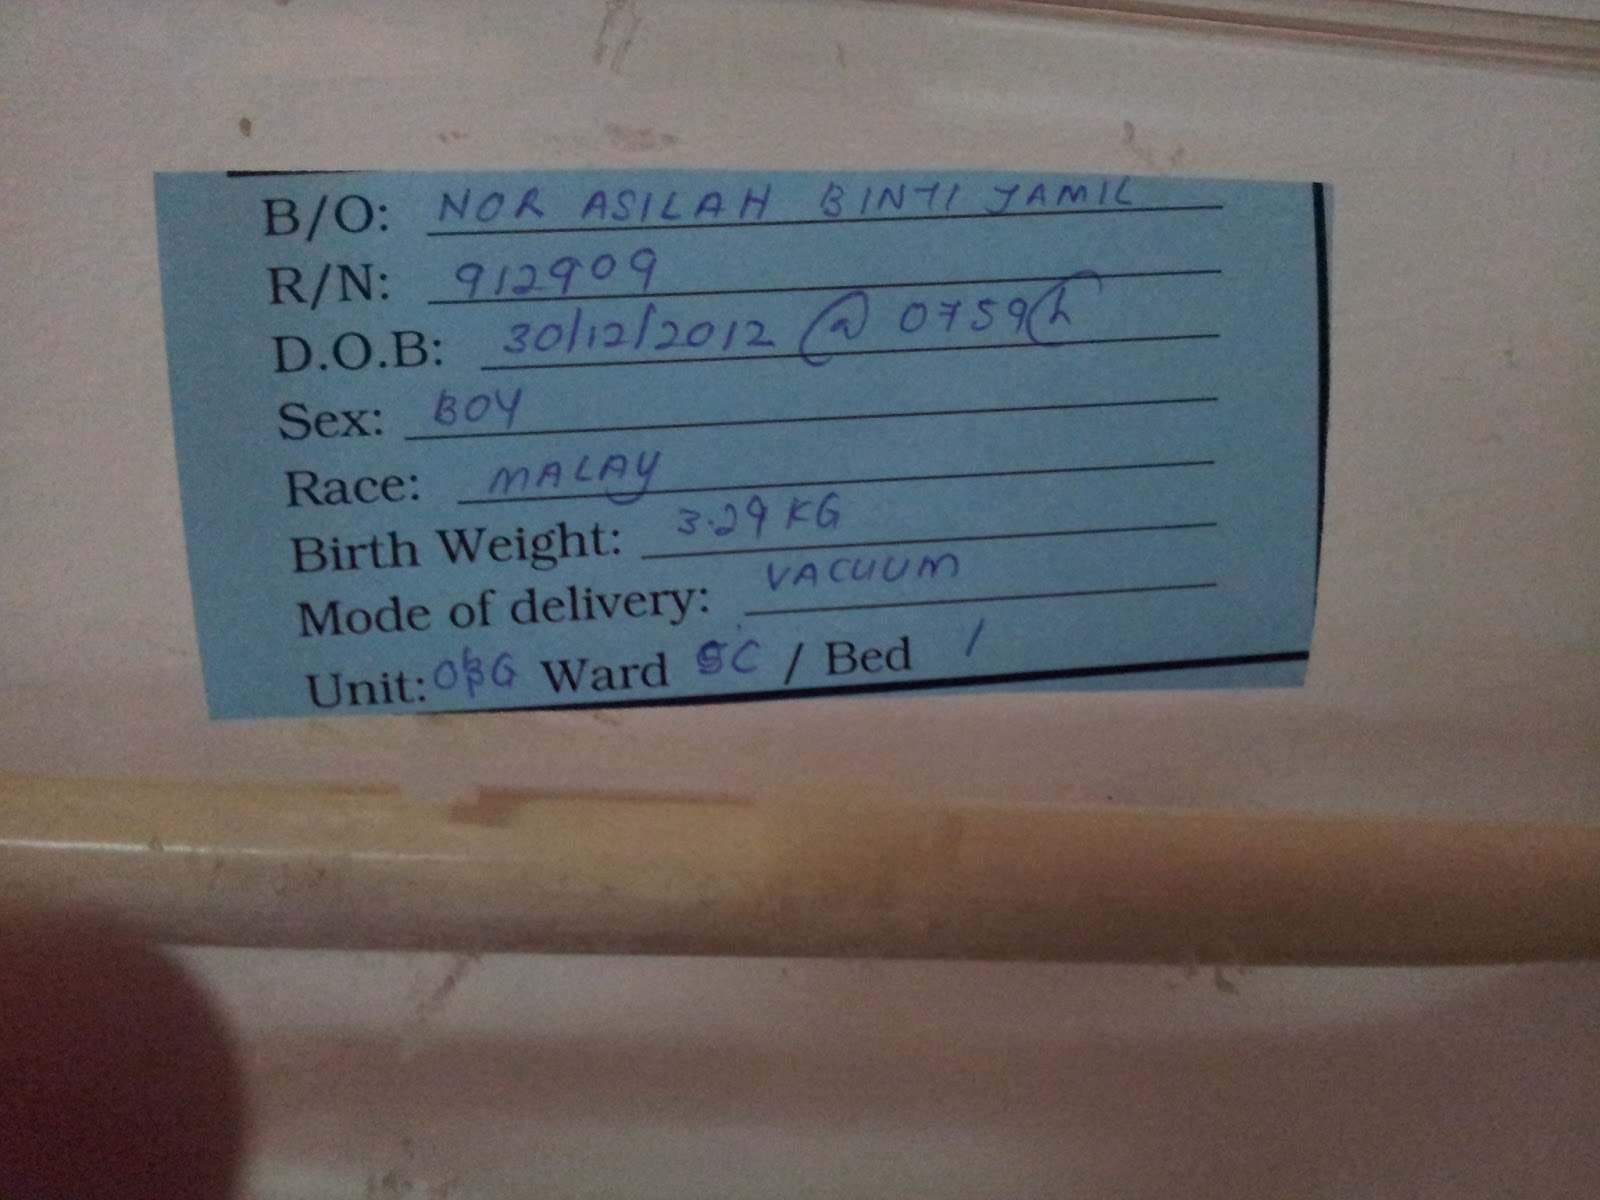 B/O: NOR ASILAH BINTI JAMIL
R/N: 912909
D.O.B: 30/12/2012 @ 0759h
Sex: BOY
Race: MALAY
Birth Weight: 3.29 KG
Mode of delivery: VACUUM
Unit: O&G Ward 5C / Bed 1